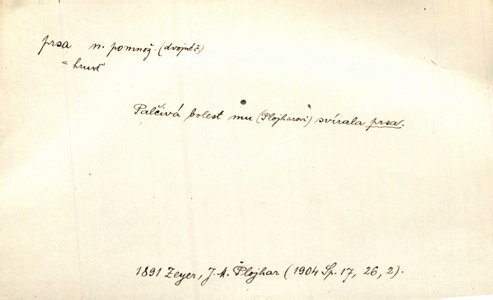 prsa n. pomnož. (dvojné č.)
= hruď
Palčivá bolest mu (Plojharovi) svírala prsa.
1891 Zeyer, J. M. Plojhar (1904 Sp. 17, 26, 2).